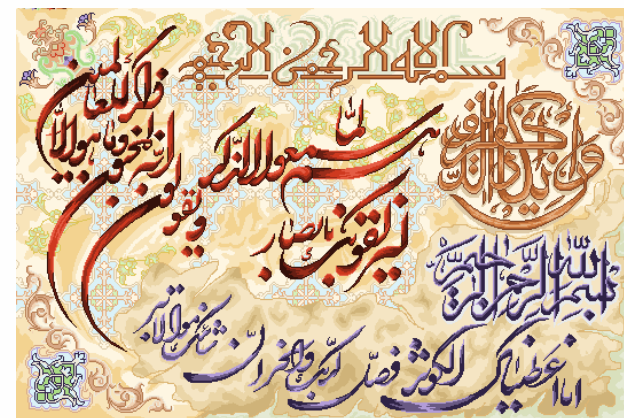 بسم الله الرحمن الرحيم
وإن يكاد الذين كفروا
ليزلقونك بأبصارهم
لما سمعوا الذكر
ويقولون إنه لمجنون وما هو إلا
ذكر للعالمين
بسم الله الرحمن الرحيم
إنا أعطيناك الكوثر فصل لربك وانحر إن
شانئك هو الأبتر